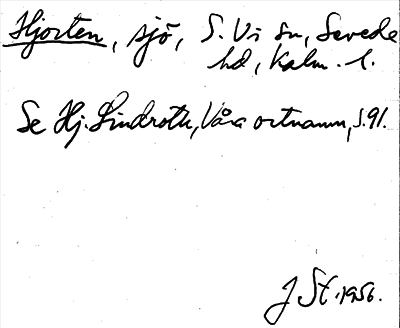 Hjorten, sjö, S. Vi sn, Sevede
hd, Kalm. l.
Se Hj. Lindroth, Våra ortnamn, s. 91.
J St. 1956.